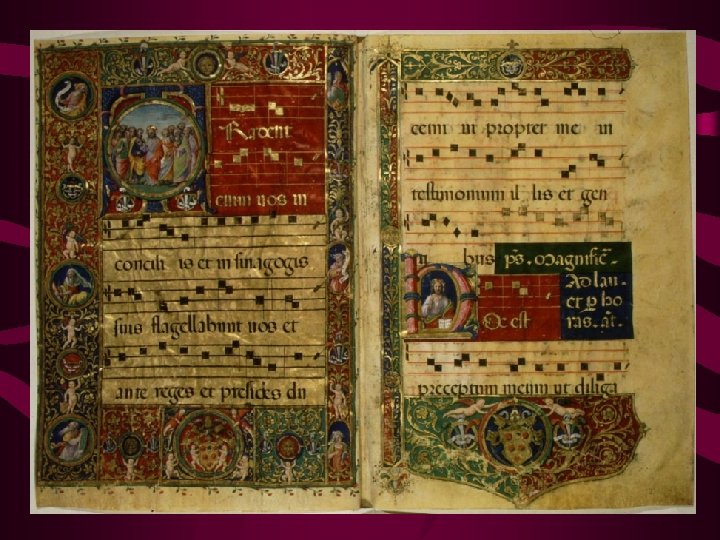 Radent
enim uos in
concili is et in sinagogis
suis flagellabunt uos et
ante reges et presides du
cemi ni ut propter me in
testimonium il lis et gen
ti bus ps. Magnific.
Ad lau.
et ꝑ ho
HOc est ras. at.
preceptum meum ut diliga